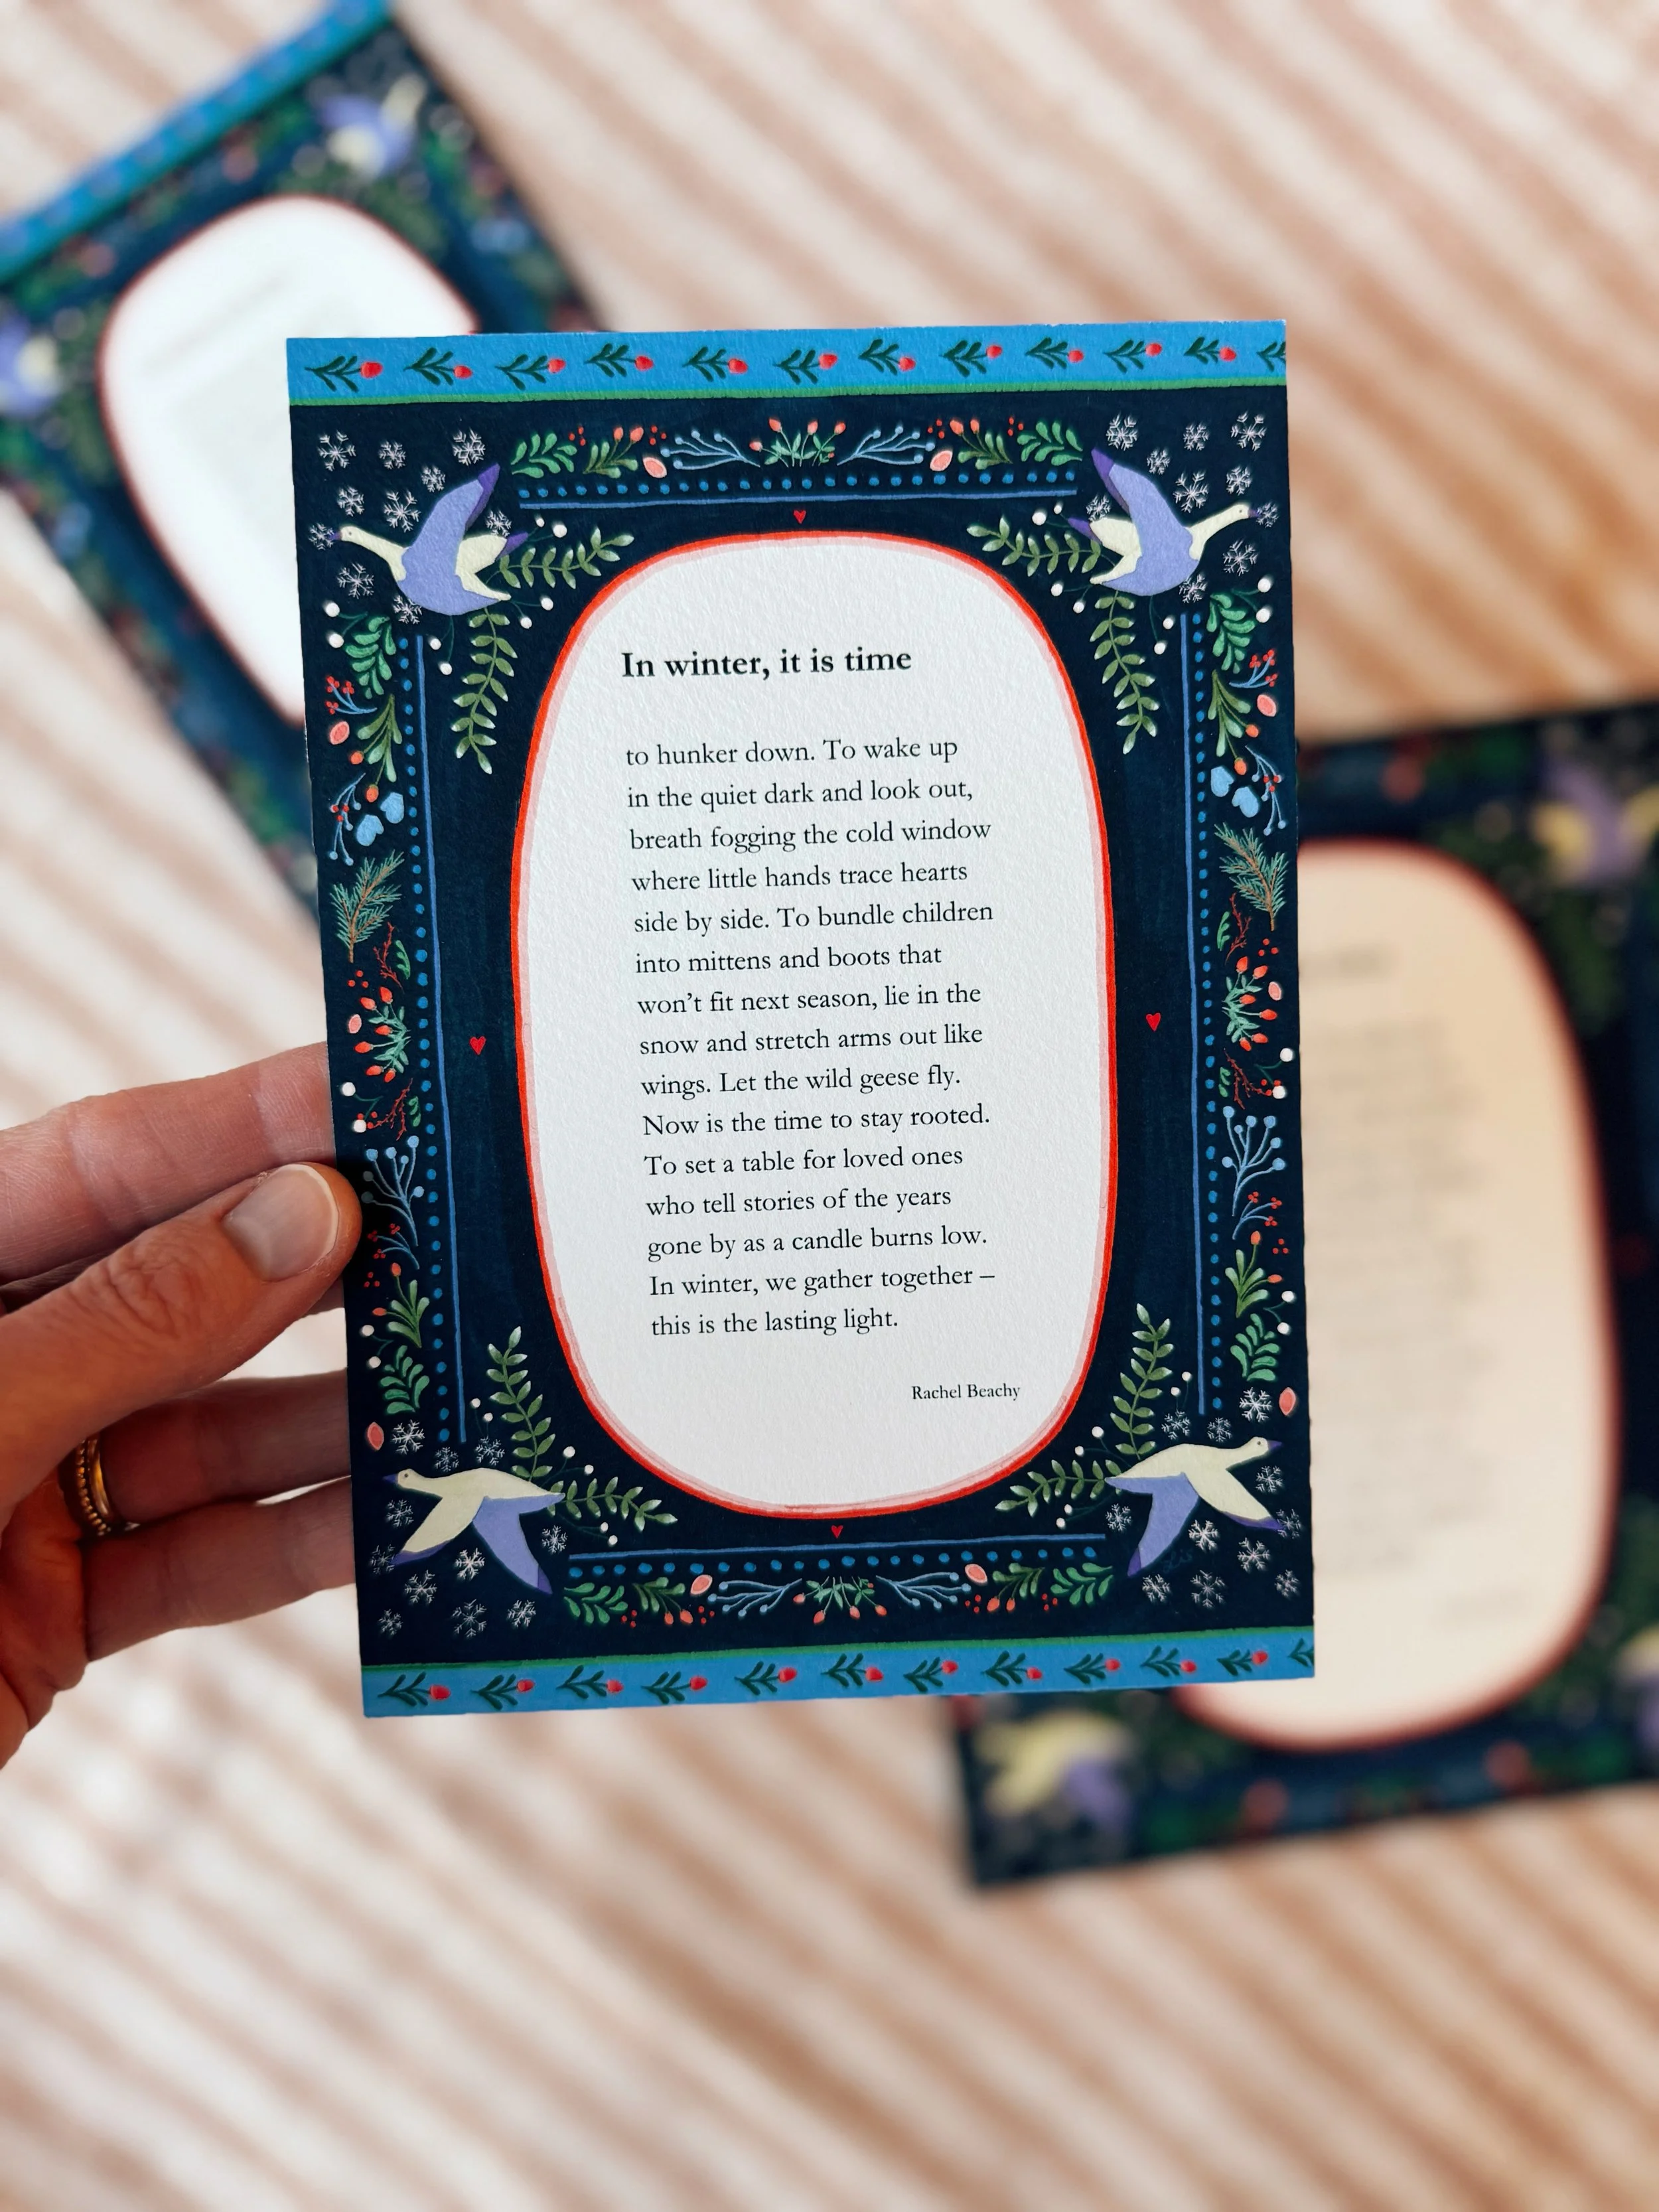 In winter, it is time
to hunker down. To wake up
in the quiet dark and look out,
breath fogging the cold window
where little hands trace hearts
side by side. To bundle children
into mittens and boots that
won’t fit next season, lie in the
snow and stretch arms out like
wings. Let the wild geese fly.
Now is the time to stay rooted.
To set a table for loved ones
who tell stories of the years
gone by as a candle burns low.
In winter, we gather together –
this is the lasting light.
Rachel Beachy